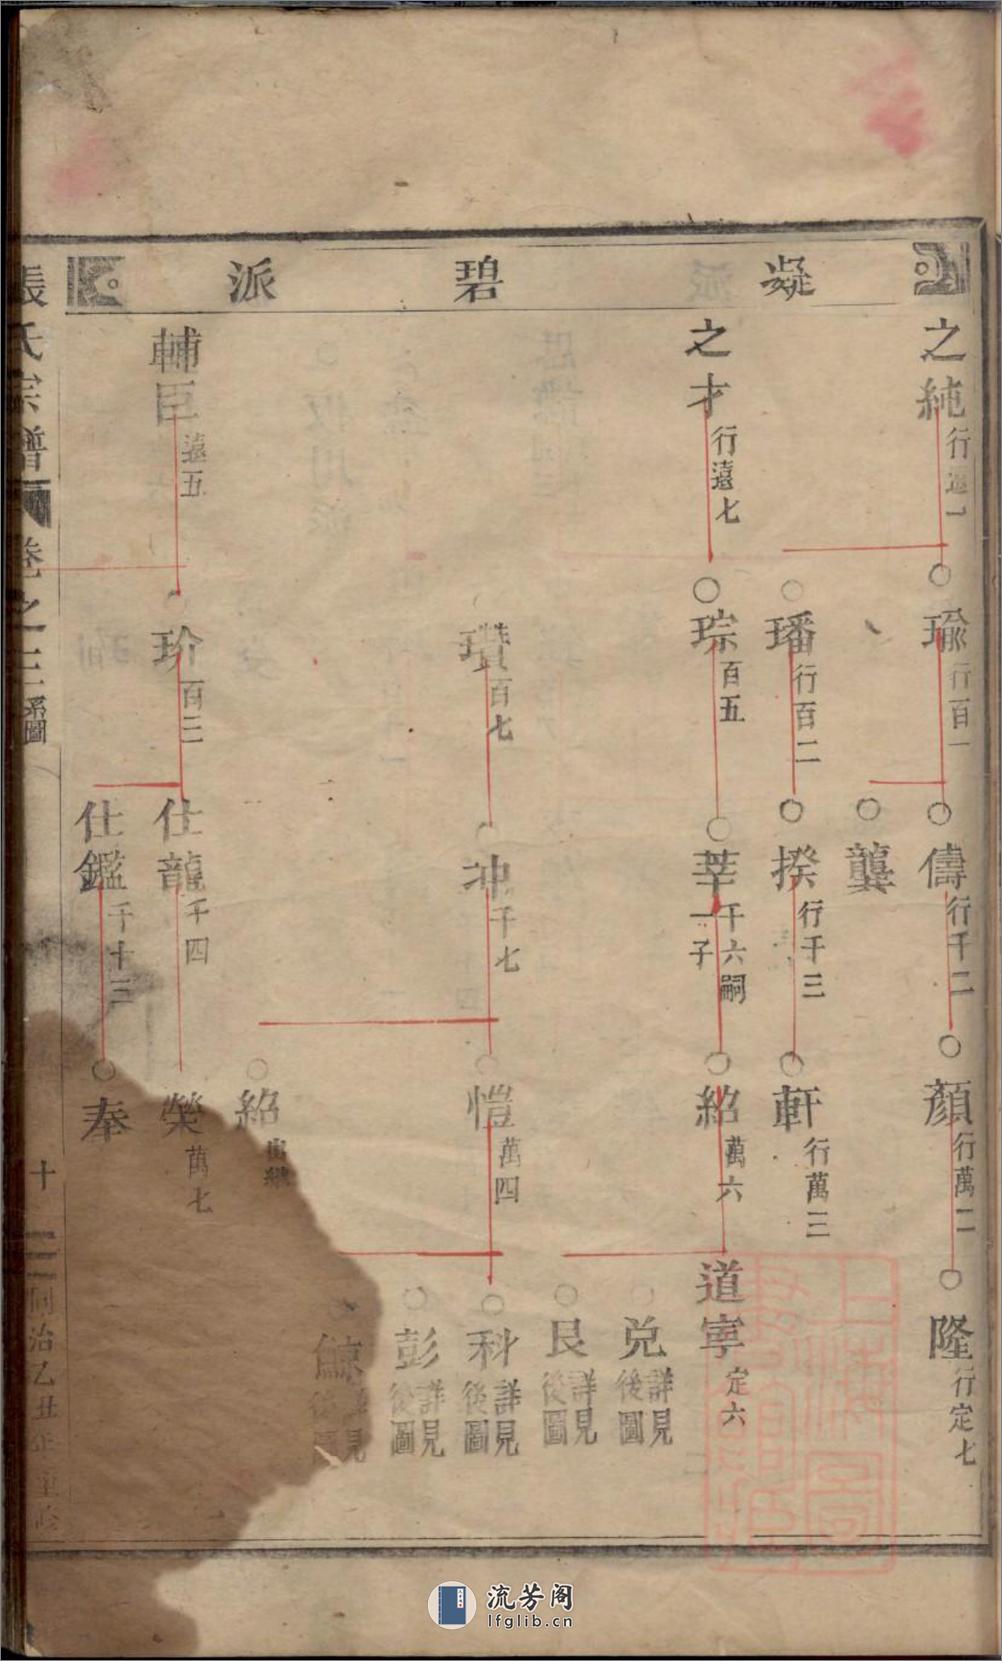 凝碧派
之純 行遠一
之才 行遠七
輔臣 遠五
瑜 行百一
璠 行百二
琮 百五
瓚 百七
玠 百三
儔 行千二
龔
揆 行千三
莘 千六嗣一子
冲 千七
仕龍 千四
仕鑑 千十三
顏 行萬二
軒 行萬三
紹 萬六
愷 萬四
紹 出繼
榮 萬七
奉
隆 行定七
道寧 定六
兌 詳見後圖
艮 詳見後圖
科 詳見後圖
彭 詳見後圖
鯨 詳見後圖
張氏宗譜 卷之三 系圖
十
同治乙丑年重修
上海圖書館藏
流芳阁
lfglib.cn